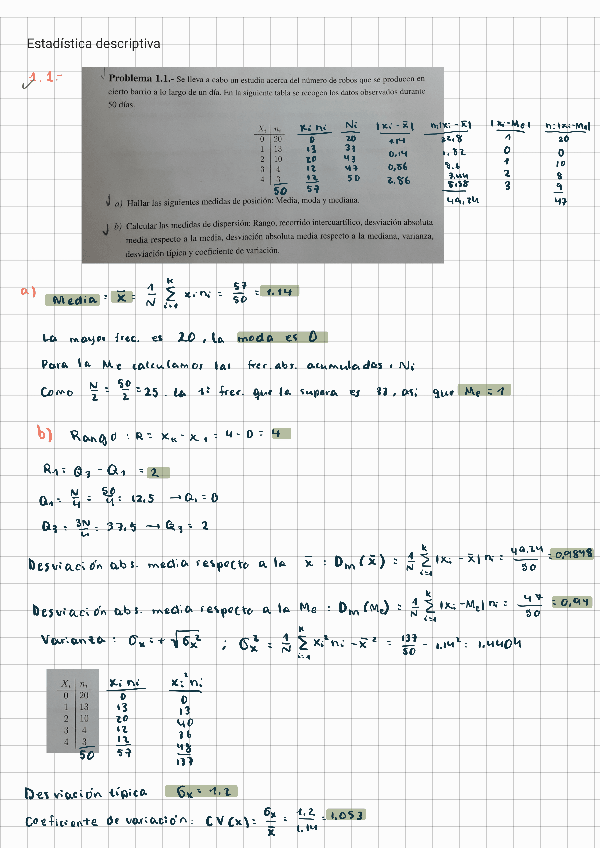 Estadística descriptiva
1.1.-
Problema 1.1.- Se lleva a cabo un estudio acerca del número de robos que se producen en
cierto barrio a lo largo de un día. En la siguiente tabla se recogen los datos observados durante
50 días.
Xi ni Xi ni Ni |Xi - X̄| ni|Xi - X̄| |Xi-Me| ni·|Xi-Me|
0 20 0 20 1.14 22,8 1 20
1 13 13 33 0,14 1,82 0 0
2 10 20 43 0,86 8.6 1 10
3 4 12 47 2 8
4 3 12 50 2.86 3 9
50 57 49,24 47
a) Hallar las siguientes medidas de posición: Media, moda y mediana.
b) Calcular las medidas de dispersión: Rango, recorrido intercuartílico, desviación absoluta
media respecto a la media, desviación absoluta media respecto a la mediana, varianza,
desviación típica y coeficiente de variación.
a) Media = X̄ = 1/N Σ(i=1, K) xi ni = 57/50 = 1.14
La mayor frec. es 20, la moda es 0
Para la Me calculamos las frec. abs. acumuladas, Ni
Como N/2 = 50/2 = 25. la 1ª frec. que la supera es 33, así que Me = 1
b) Rango: R = XK - X1 = 4 - 0 = 4
RI = Q3 - Q1 = 2
Q1 = N/4 = 50/4 = 12.5 → Q1 = 0
Q3 = 3N/4 = 37.5 → Q3 = 2
Desviación abs. media respecto a la x̄ : Dm(x̄) = 1/N Σ(i=1, K) |xi - x̄| ni = 49,24/50 = 0,9848
Desviación abs. media respecto a la Me : Dm(Me) = 1/N Σ(i=1, K) |xi-Me| ni = 47/50 = 0,94
Varianza: σx = + √σx² ; σx² = 1/N Σ(i=1, K) xi² ni - x̄² = 137/50 - 1.14² = 1.4404
Xi ni Xi ni Xi² ni
0 20 0 0
1 13 13 13
2 10 20 40
3 4 12 36
4 3 12 48
50 57 137
Desviación típica σx = 1.2
Coeficiente de variación: CV(x) = σx/x̄ = 1.2/1.14 = 1.053